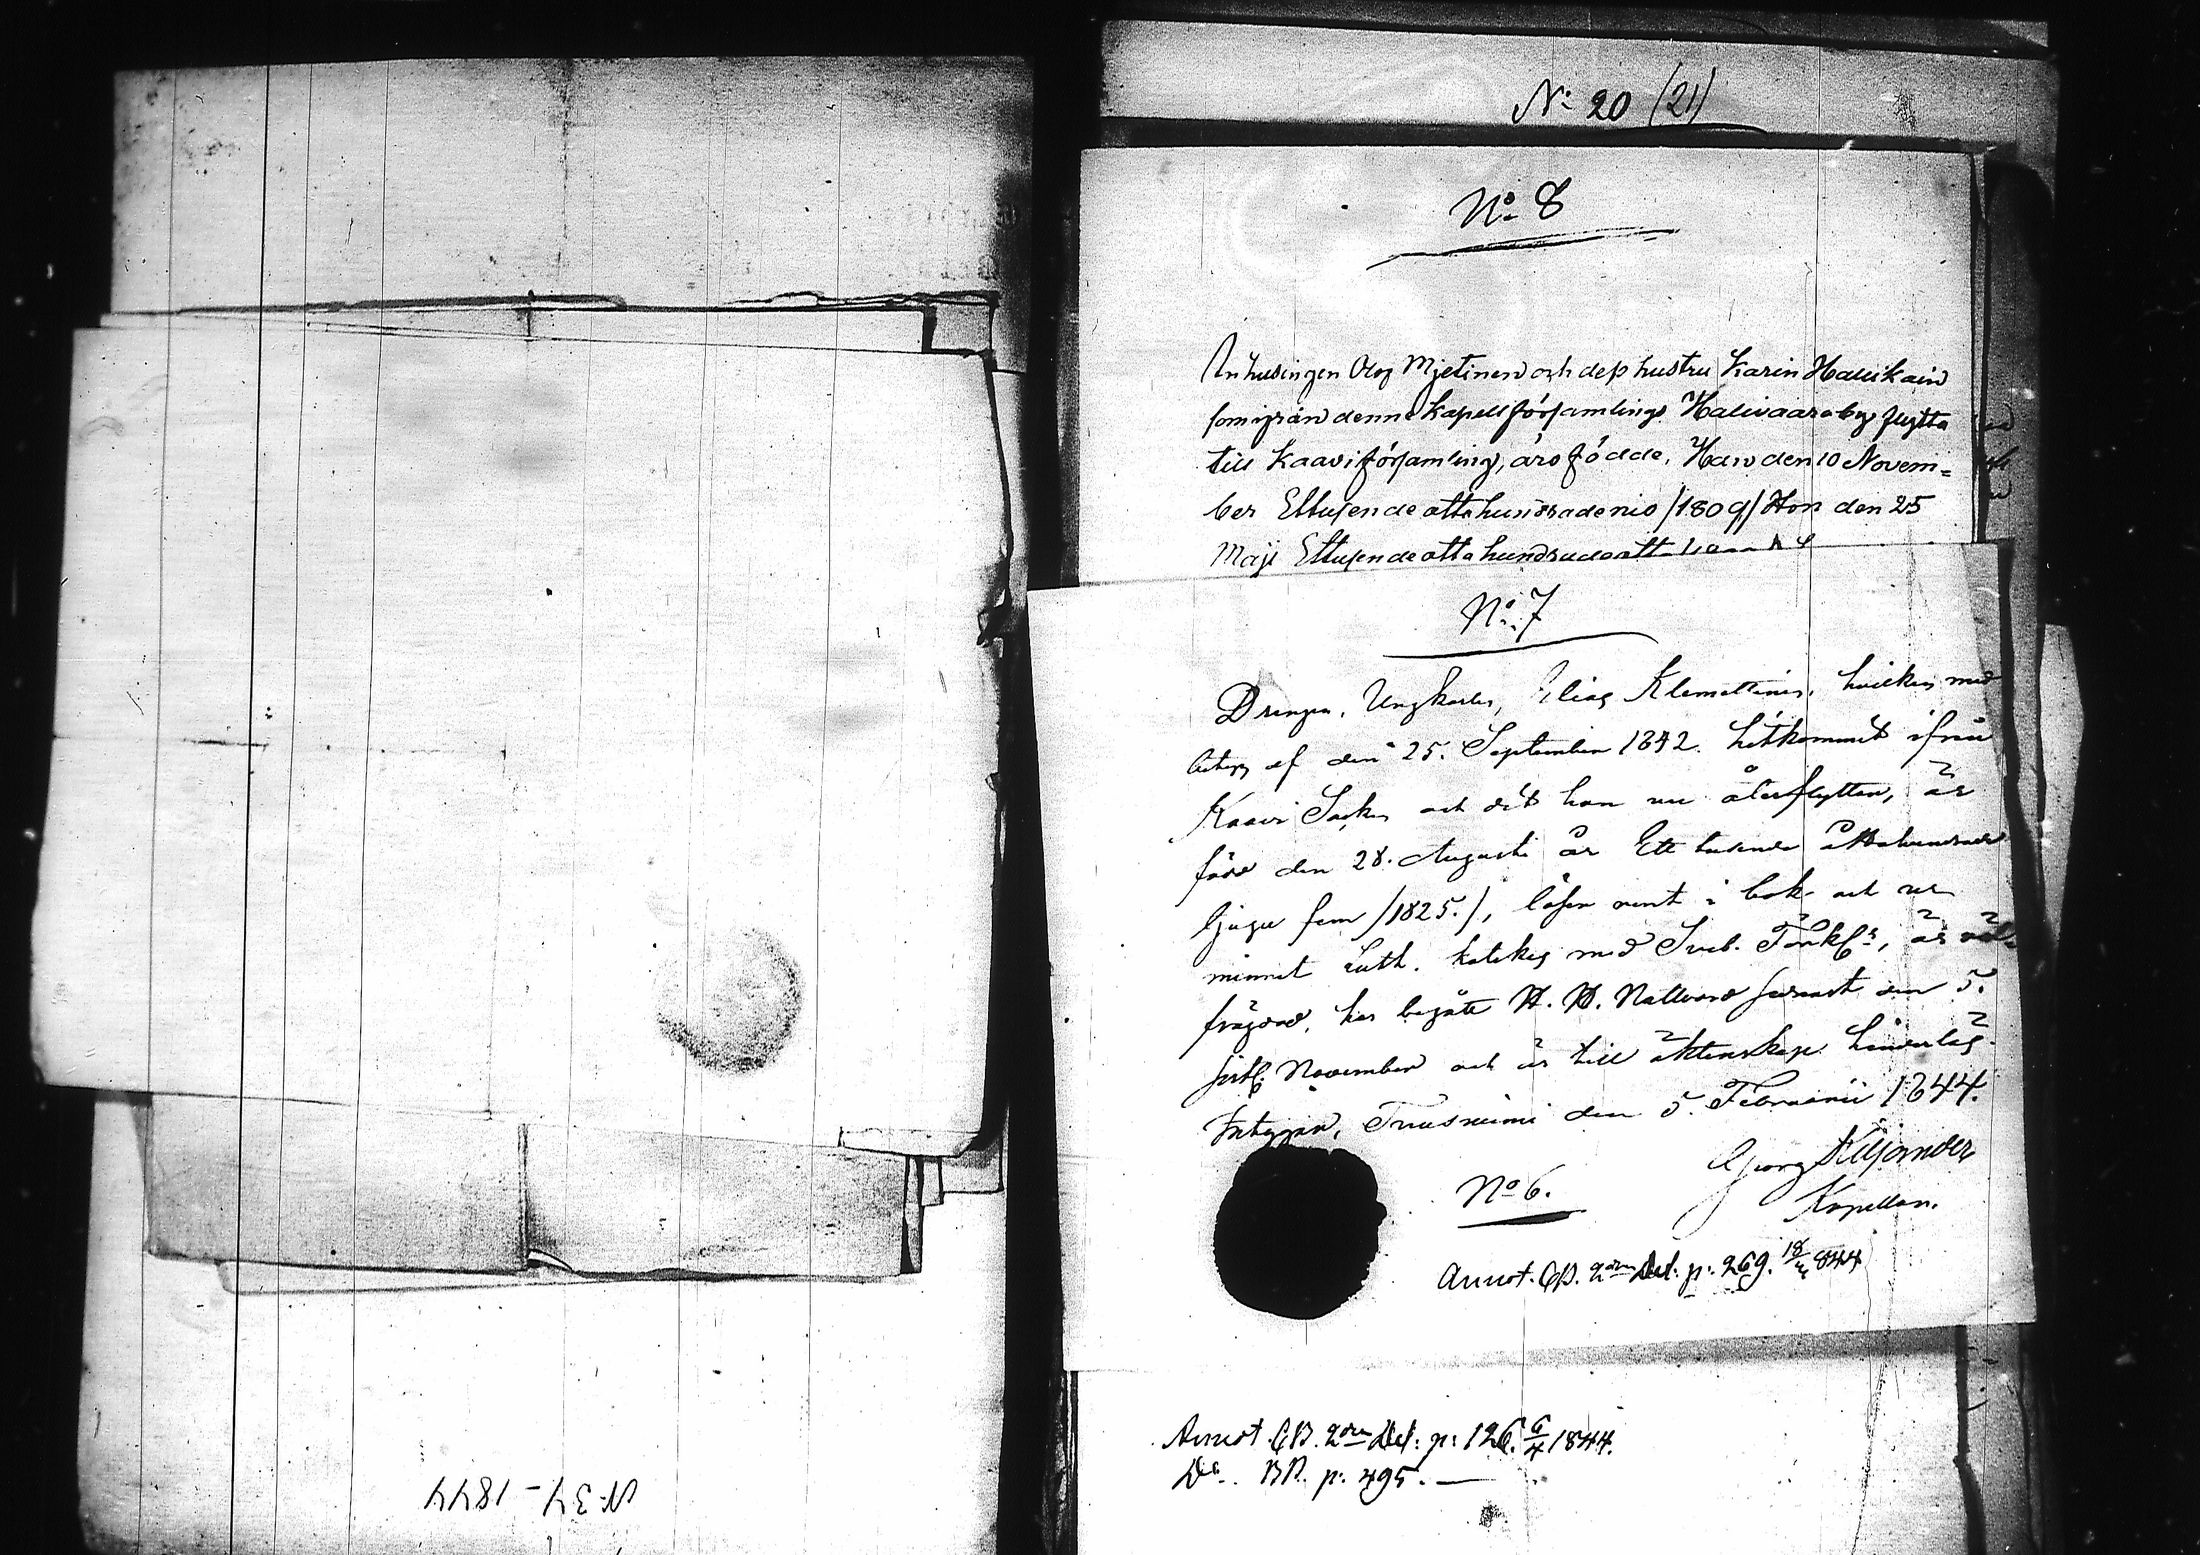 N: 20 (21)
No 8
Inhusingen Olof Mjetinen och dess hustru Karin Hallikain
som ifrån denne Kapellförsamlings Halivaara by flytta
till Kaavi församling, äro födde, Han den 10 Novem=
ber Ettusende åttahundradenio /1809/ Hon den 25
Maji Ettusende åttahundrade
No: 7
Drengen, Ungkarlen, Elias Klemettinen, hvilken med
betyg af den 25. September 1842. hitkommit ifrån
Kaavi Socken och dit han nu återflyttar, är
född den 28. Augusti år Ett tusende åttahundrade
tjugu fem /1825./, läser rent i bok och ur
minnet Luth. Katekes med Sveb. Förkl:r, är väl
frägdad, har begått H. H. Nattvard senast den 5.
sistl. November och är till äktenskap hinderlös.
Intygar, Tuusniemi den 5. Februarii 1844.
Georg Kiljander
Kapellan.
No 6.
Annot. CB. 2dra Del: p: 269. 18/3 844
Annot. CB. 2dra Del: p: 126. 6/4 1844.
Do. BB. p: 495. —
N: 34 - 1844